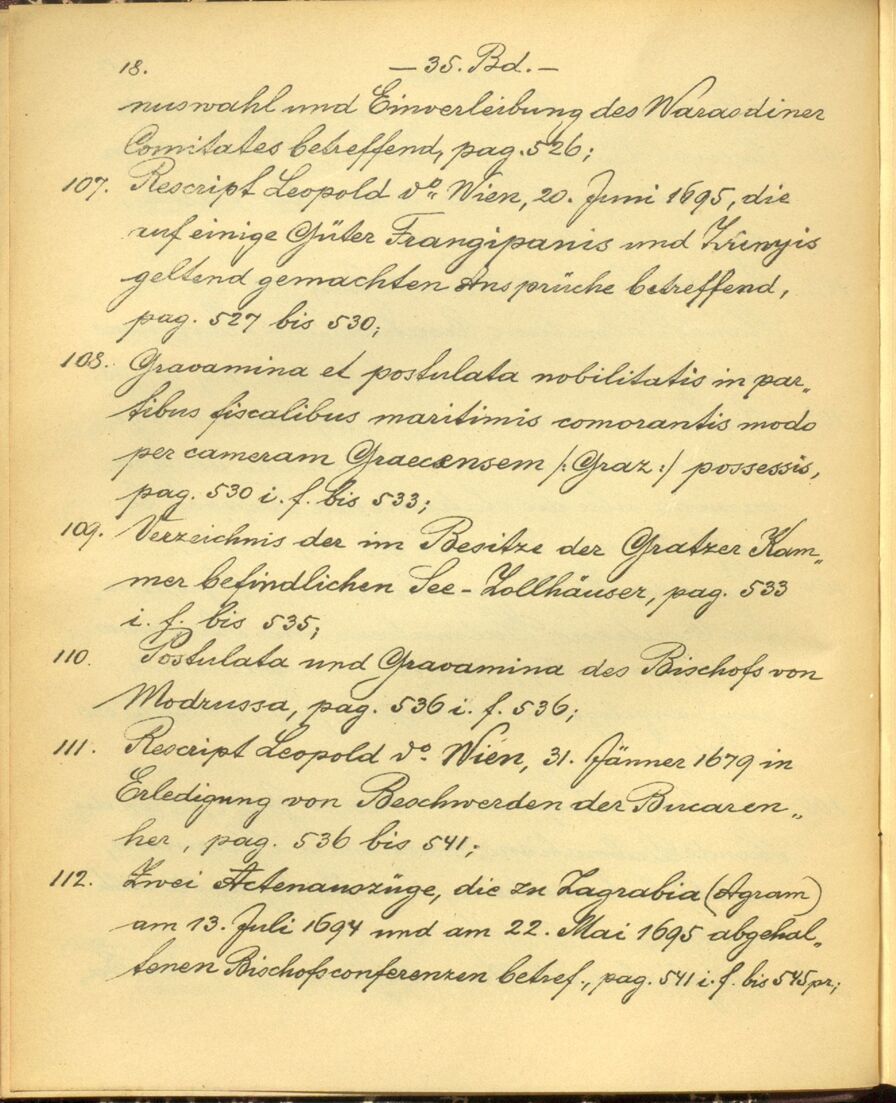 18. — 35. Bd. —
nuswahl und Einverleibung des Warasdiner
Comitates betreffend, pag. 526;
107. Rescript Leopold do. Wien, 20. Juni 1695, die
auf einige Güter Frangipanis und Zrinyis
geltend gemachten Ansprüche betreffend,
pag. 527 bis 530;
108. Gravamina et postulata nobilitatis in par„
tibus fiscalibus maritimis comorantis modo
per cameram Graecensem /: Graz :/ possessis,
pag. 530 i. f. bis 533;
109. Verzeichnis der im Besitze der Gratzer Kam„
mer befindlichen See-Zollhäuser, pag. 533
i. f. bis 535;
110. Postulata und Gravamina des Bischofs von
Modrussa, pag. 536 i. f. 536;
111. Rescript Leopold do. Wien, 31. Jänner 1679 in
Erledigung von Beschwerden der Bucaren„
her, pag. 536 bis 541;
112. Zwei Actenauszüge, die zu Zagrabia (Agram)
am 13. Juli 1694 und am 22. Mai 1695 abgehal„
tenen Bischofsconferenzen betref., pag. 541 i. f. bis 545 pr;